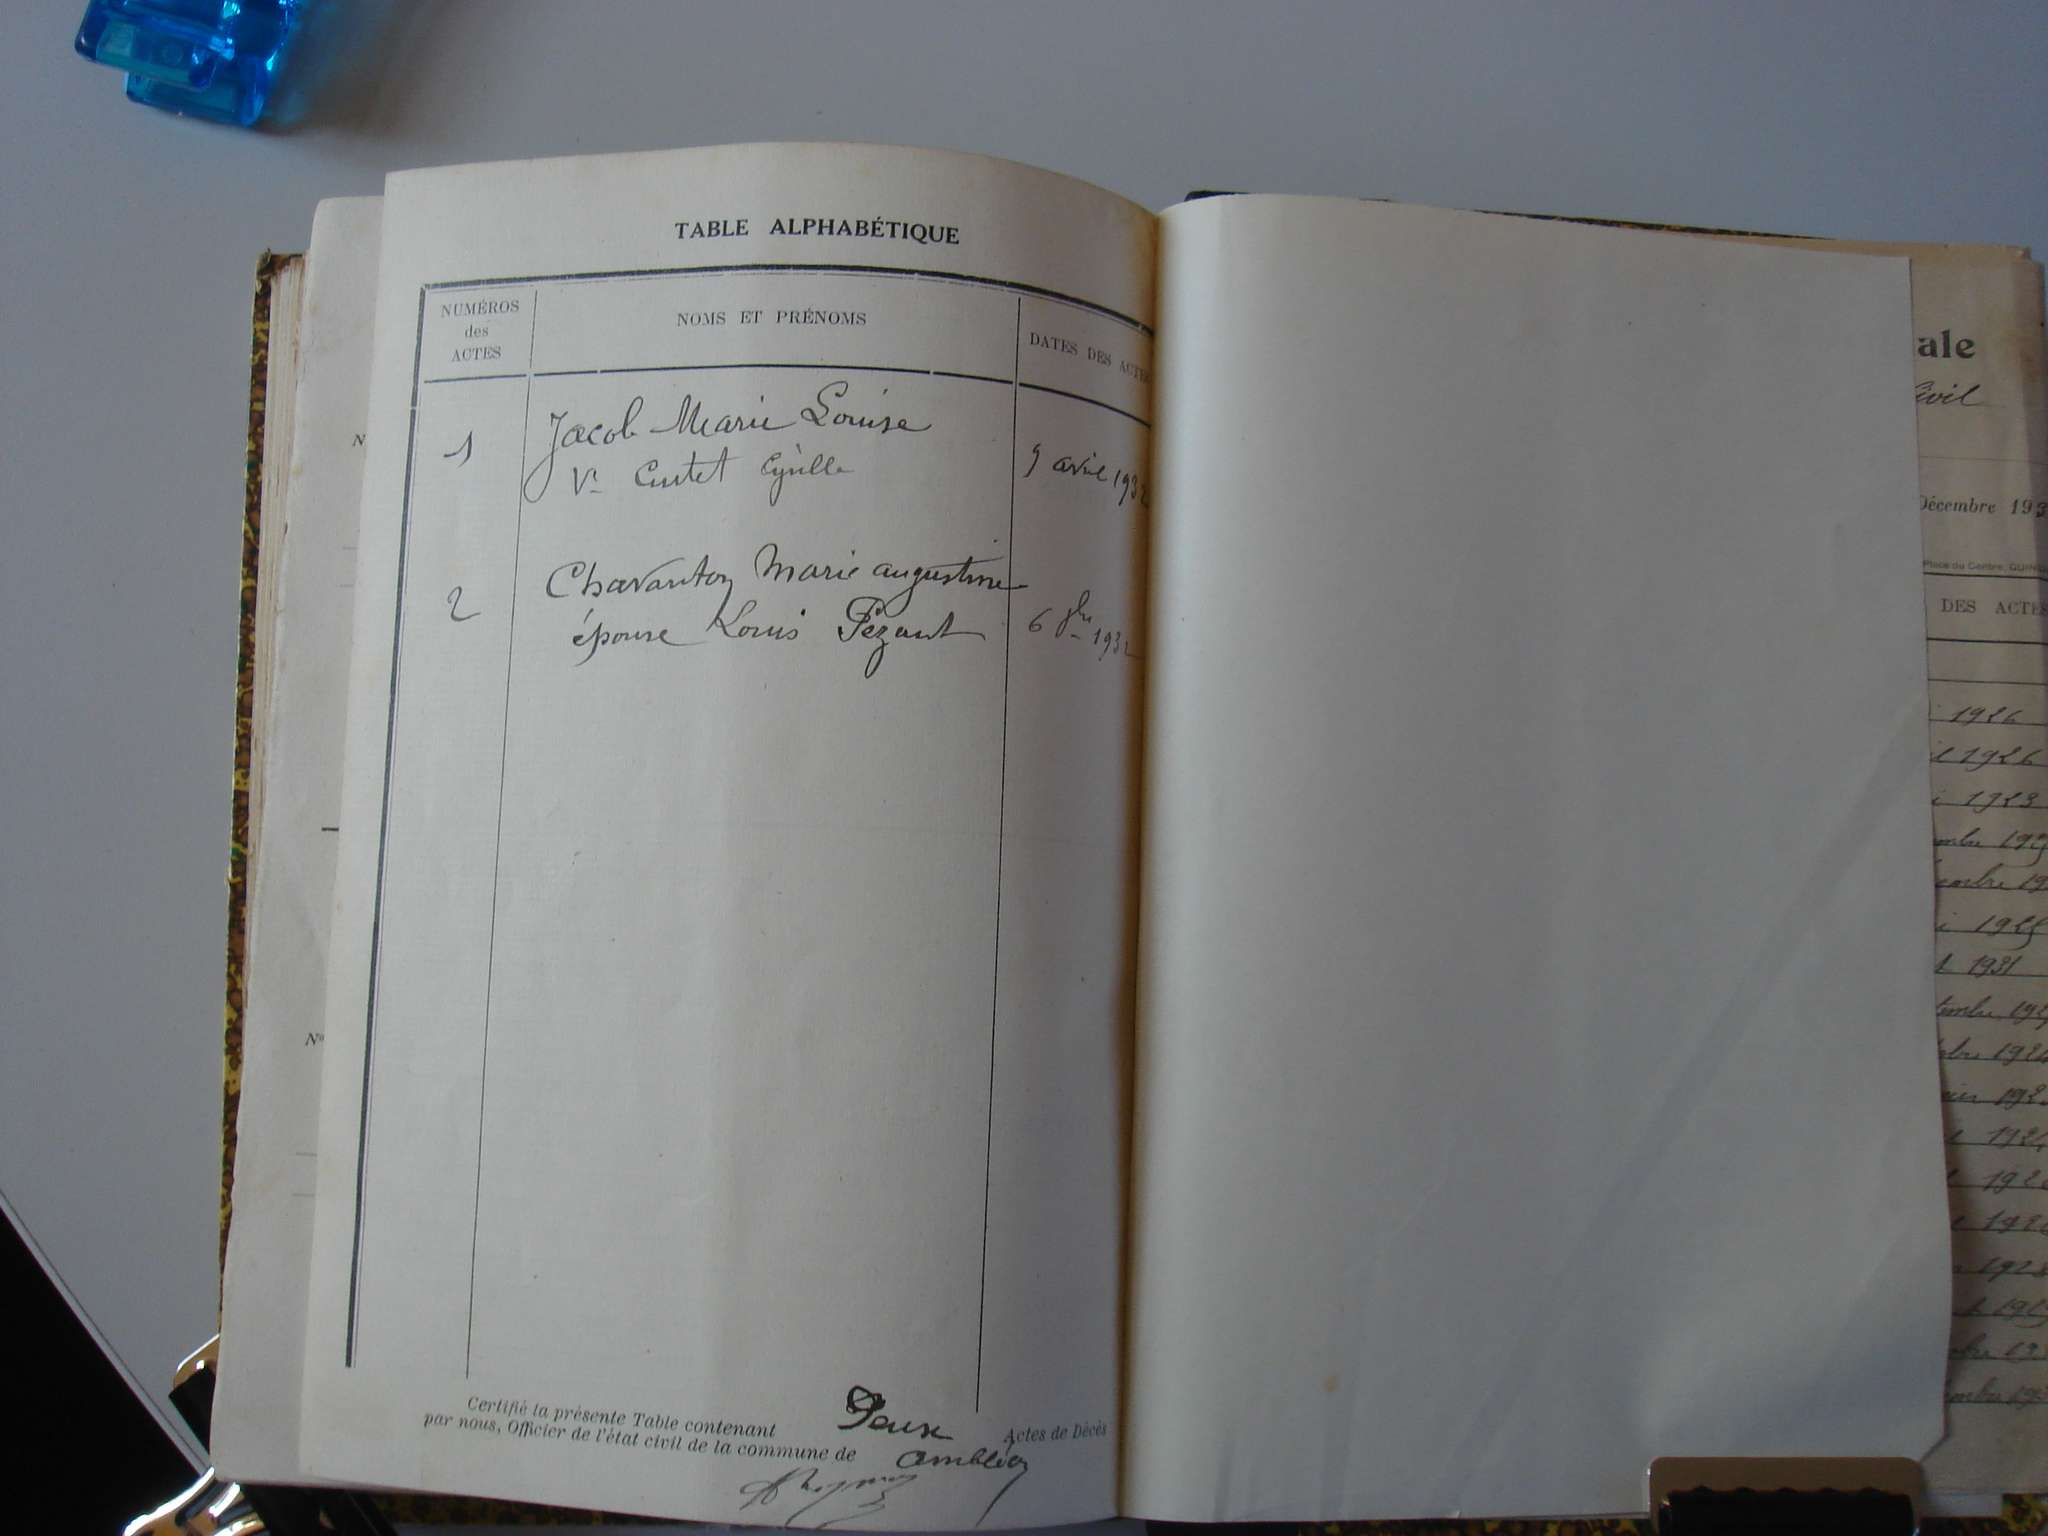 TABLE ALPHABÉTIQUE
NUMÉROS
des
ACTES
NOMS ET PRÉNOMS
DATES DES ACTES
1
Jacob Marie Louise
Ve Curtet Cyrille
9 avril 1932
2
Chavanton Marie augustine
épouse Louis Pézant
6 9bre 1932
Certifié la présente Table contenant Deux Actes de Décès
par nous, Officier de l'état civil de la commune de Ambléon
N
Nos
ale
Civil
Décembre 193
Place du Centre, GUING
DES ACTES
1926
il 1926
i 1923
embre 19
i 1925
1931
tembre 192
1928